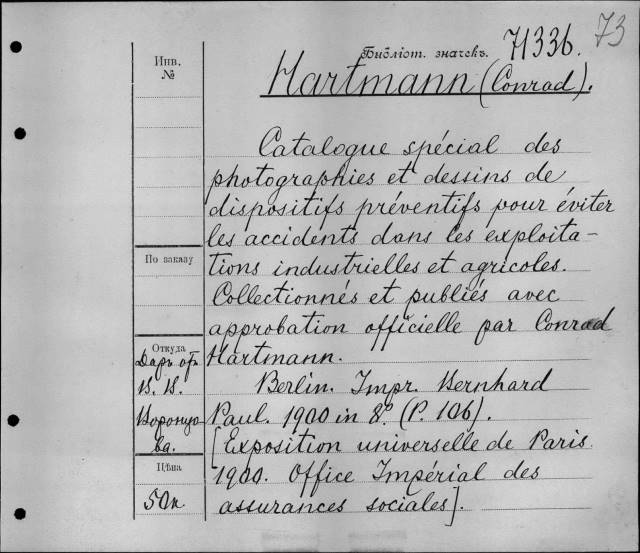 73
Библіот. значекъ. 71336.
Инв.
№
Hartmann (Conrad).
Catalogue spécial des
photographies et dessins de
dispositifs préventifs pour éviter
les accidents dans les exploita-
tions industrielles et agricoles.
Collectionnés et publiés avec
approbation officielle par Conrad
Hartmann.
Berlin. Impr. Bernhard
Paul. 1900 in 8º. (P. 106).
[Exposition universelle de Paris
1900. Office Impérial des
assurances sociales].
По заказу
Откуда
Даръ отъ
В. В.
Воронцо
ва.
Цѣна
50к